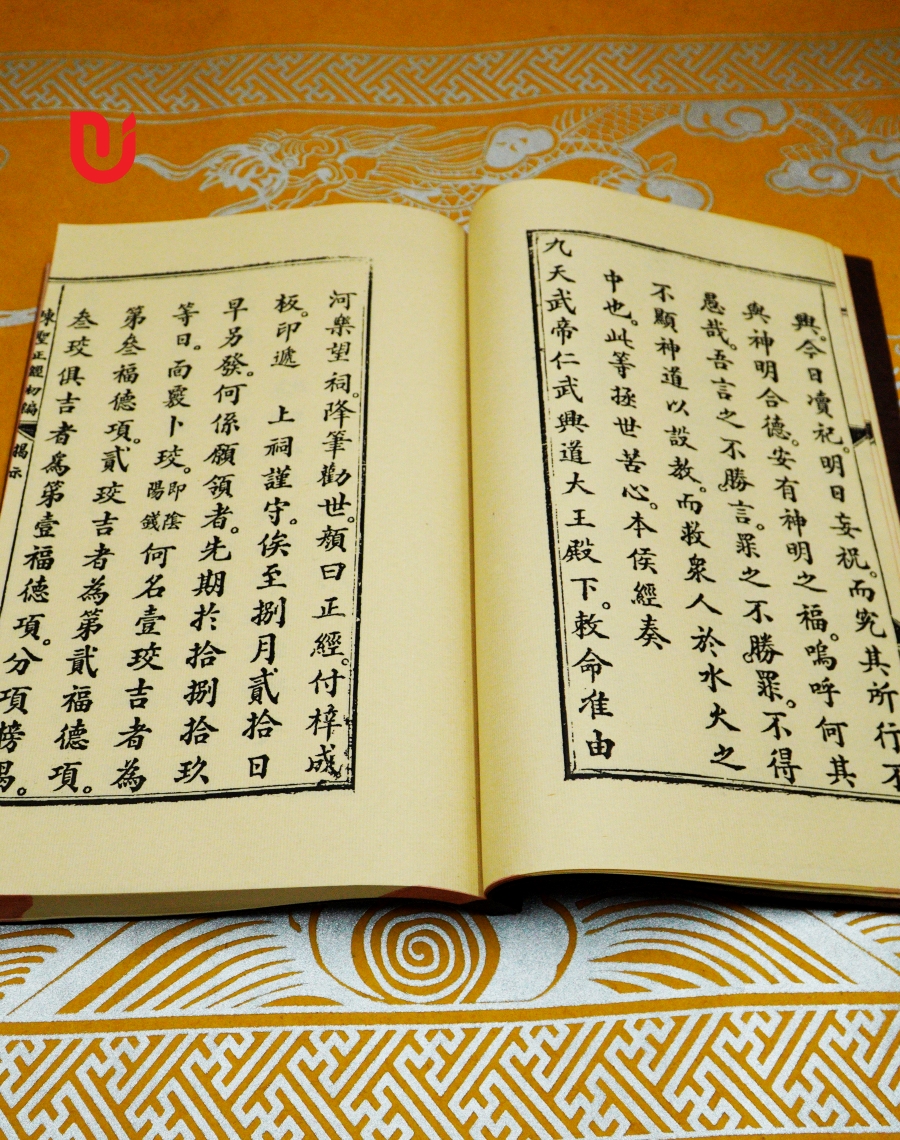 與。今日凟祀。明日妄祝。而究其所行不
與神明合德。安有神明之福。嗚呼何其
愚哉。吾言之不勝言。罪之不勝罪。不得
不顯神道以設教。而救衆人於水火之
中也。此等拯世苦心。本侯經奏
九天武帝仁武興道大王殿下。敕命准由
河樂望祠。降筆勸世。顏曰正經。付梓成
板。印遞 上祠謹守。俟至捌月貳拾日
早另發。何係願領者。先期於拾捌拾玖
等日。而卜珓。即陰陽錢何名壹珓吉者為
第叁福德項。貳珓吉者為第貳福德項。
叁珓俱吉者為第壹福德項。分項榜揭。
聖正經初編 揭示